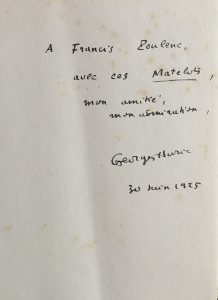 A Francis Poulenc,
avec ces Matelots,
mon amitié,
mon admiration,
Georges Auric
30 Juin 1925